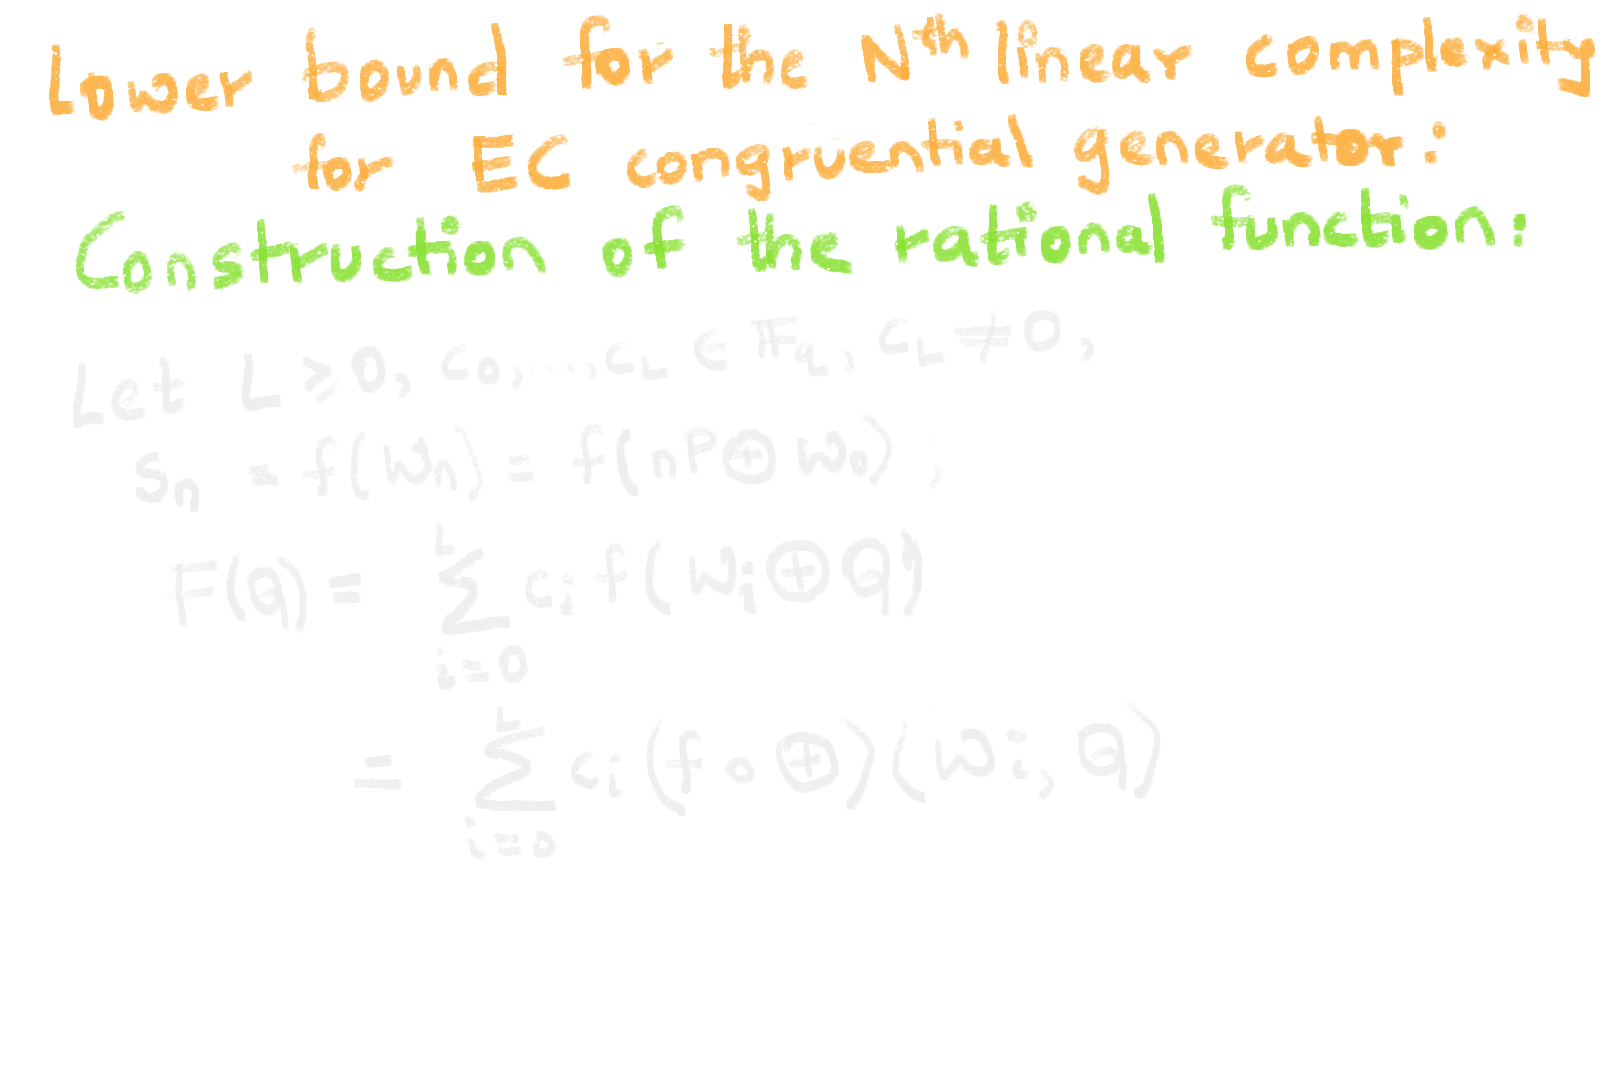 Lower bound for the Nᵗʰ linear complexity
for EC congruential generator:
Construction of the rational function:
Let L ⩾ 0, c₀,...,c_L ∈ 𝔽_q, c_L ≠ 0,
s_n = f(W_n) = f(nP ⊕ W₀),
F(Q) = ∑_{i=0}^{L} c_i f(W_i ⊕ Q)
= ∑_{i=0}^{L} c_i (f ∘ ⊕)(W_i, Q)